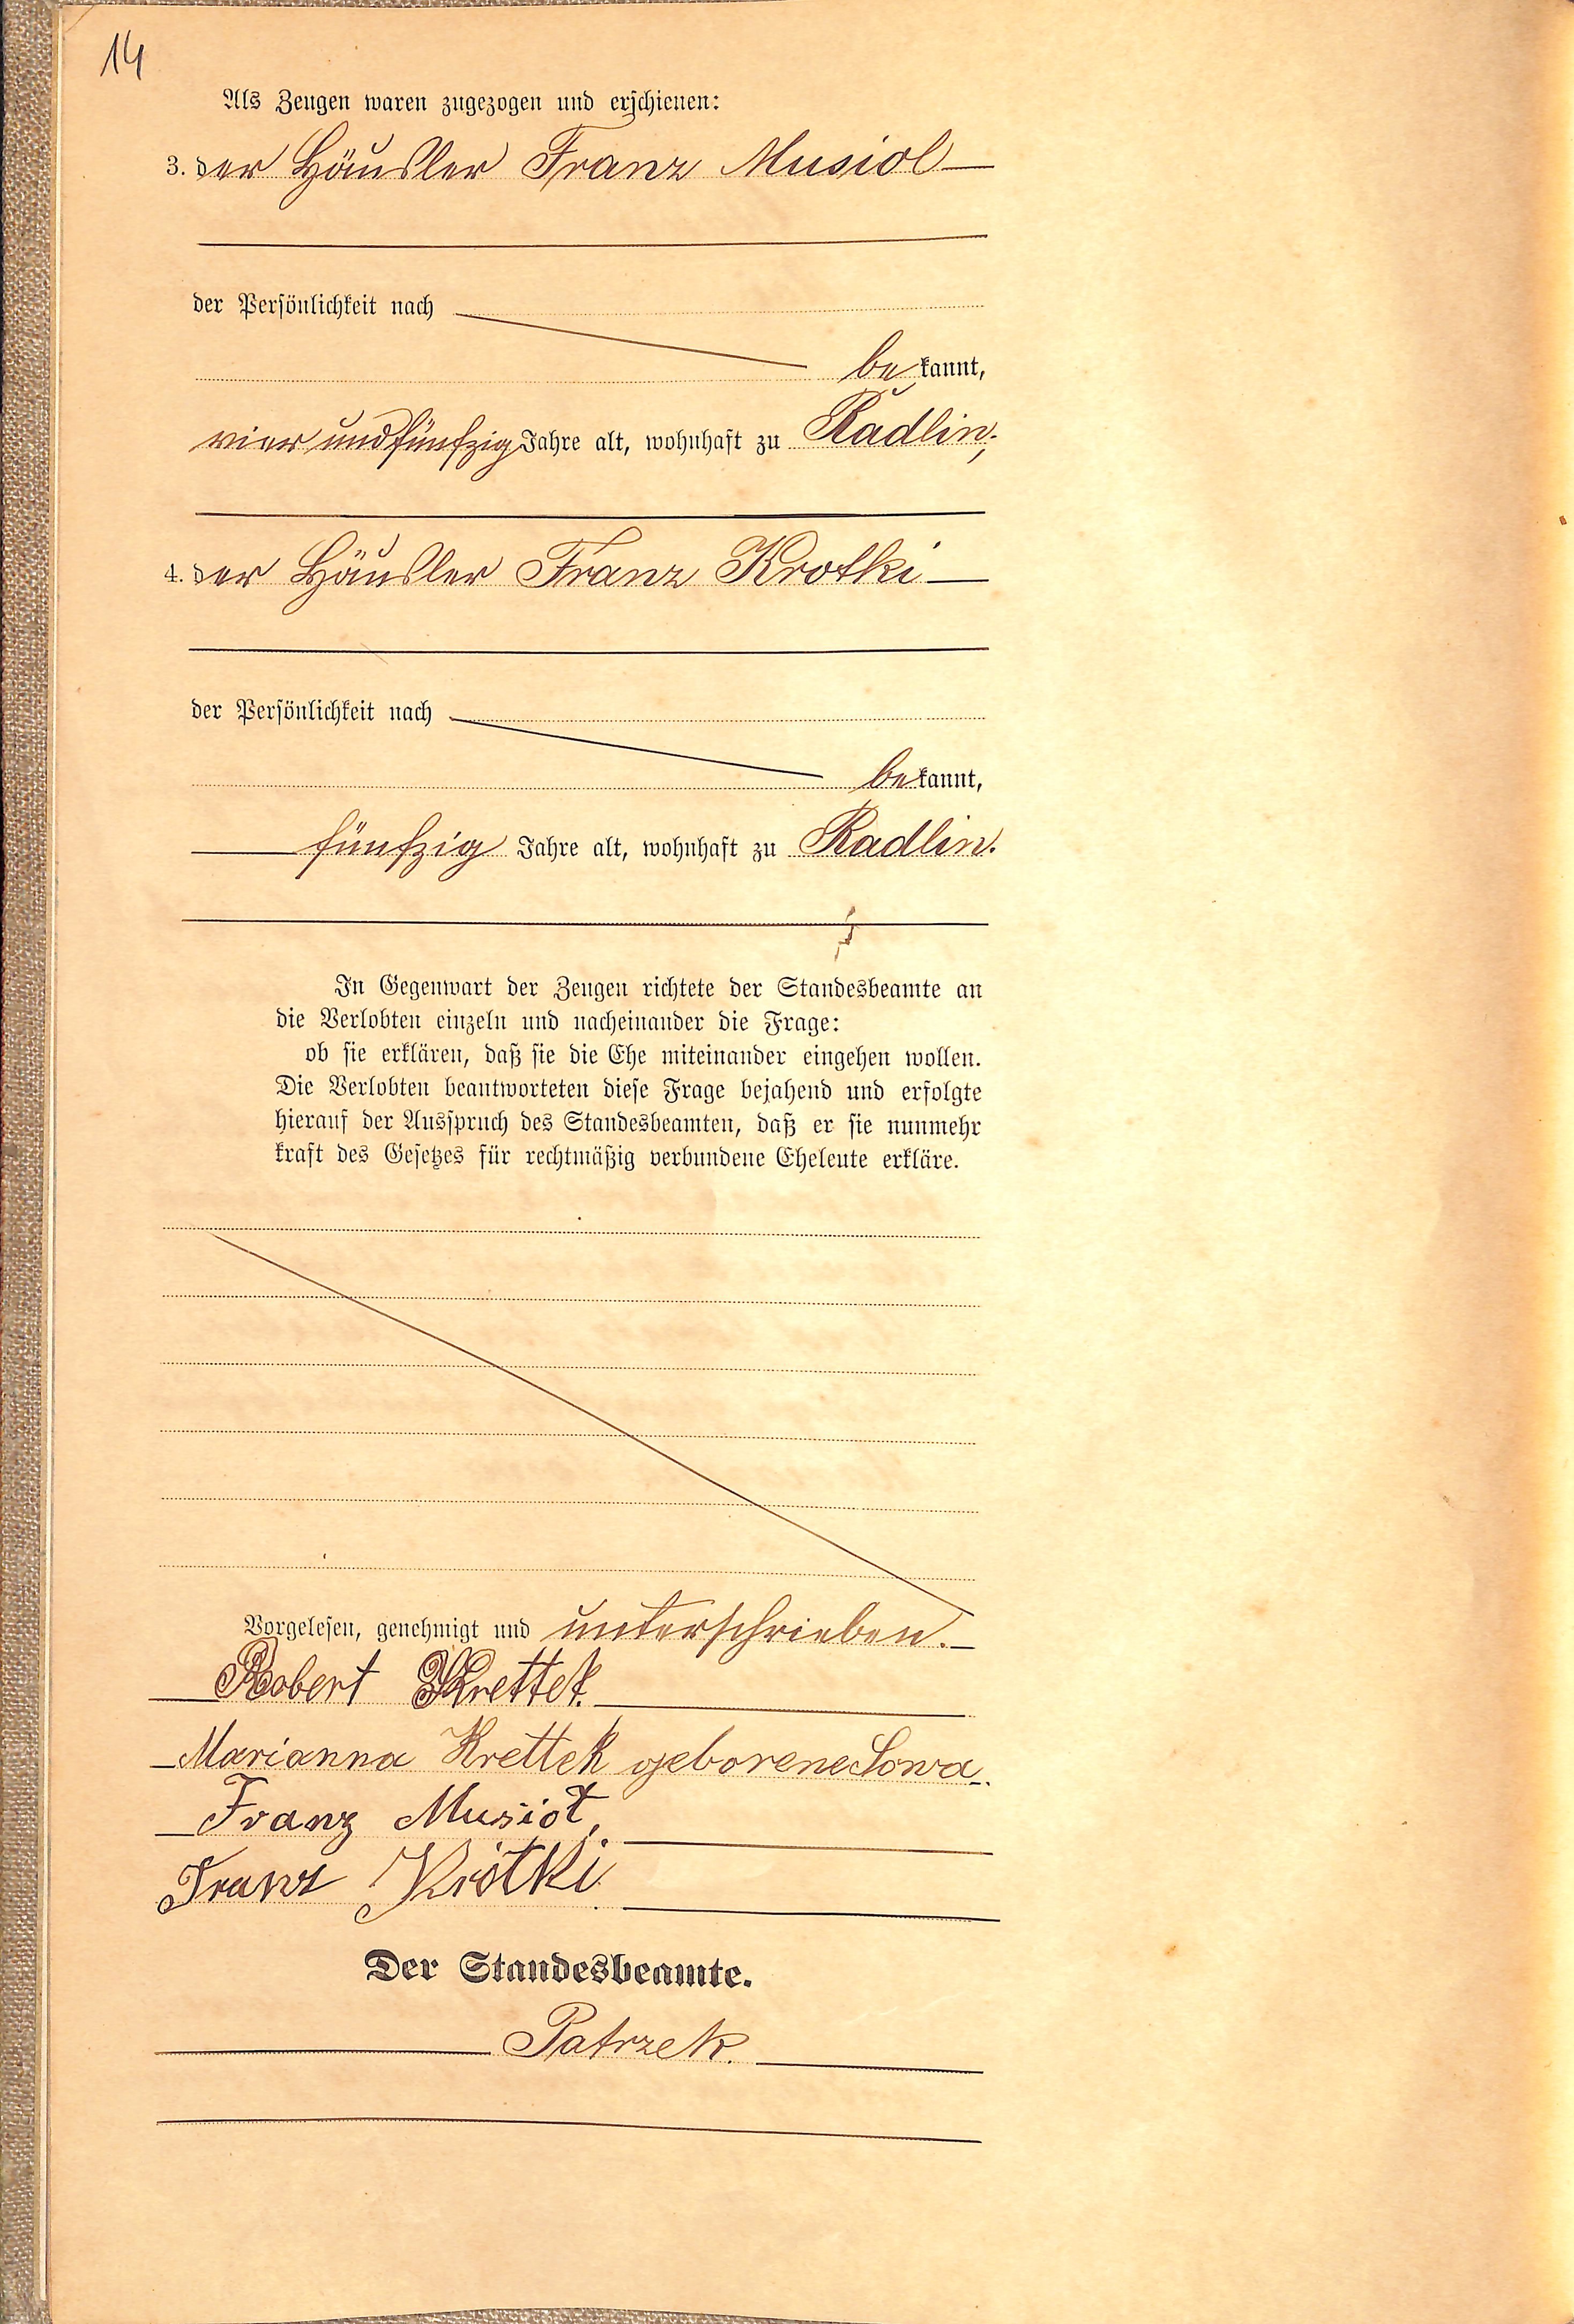 14
Als Zeugen waren zugezogen und erschienen:
3. der Häusler Franz Musiol
der Persönlichkeit nach
bekannt,
vier und fünfzig Jahre alt, wohnhaft zu Radlin;
4. der Häusler Franz Krotki
der Persönlichkeit nach
bekannt,
fünfzig Jahre alt, wohnhaft zu Radlin.
In Gegenwart der Zeugen richtete der Standesbeamte an
die Verlobten einzeln und nacheinander die Frage:
ob sie erklären, daß sie die Ehe miteinander eingehen wollen.
Die Verlobten beantworteten diese Frage bejahend und erfolgte
hierauf der Ausspruch des Standesbeamten, daß er sie nunmehr
kraft des Gesetzes für rechtmäßig verbundene Eheleute erkläre.
Vorgelesen, genehmigt und unterschrieben.
Robert Krettek.
Marianna Krettek geborene Sowa.
Franz Musioł,
Franz Krótki.
Der Standesbeamte.
Patrzek.